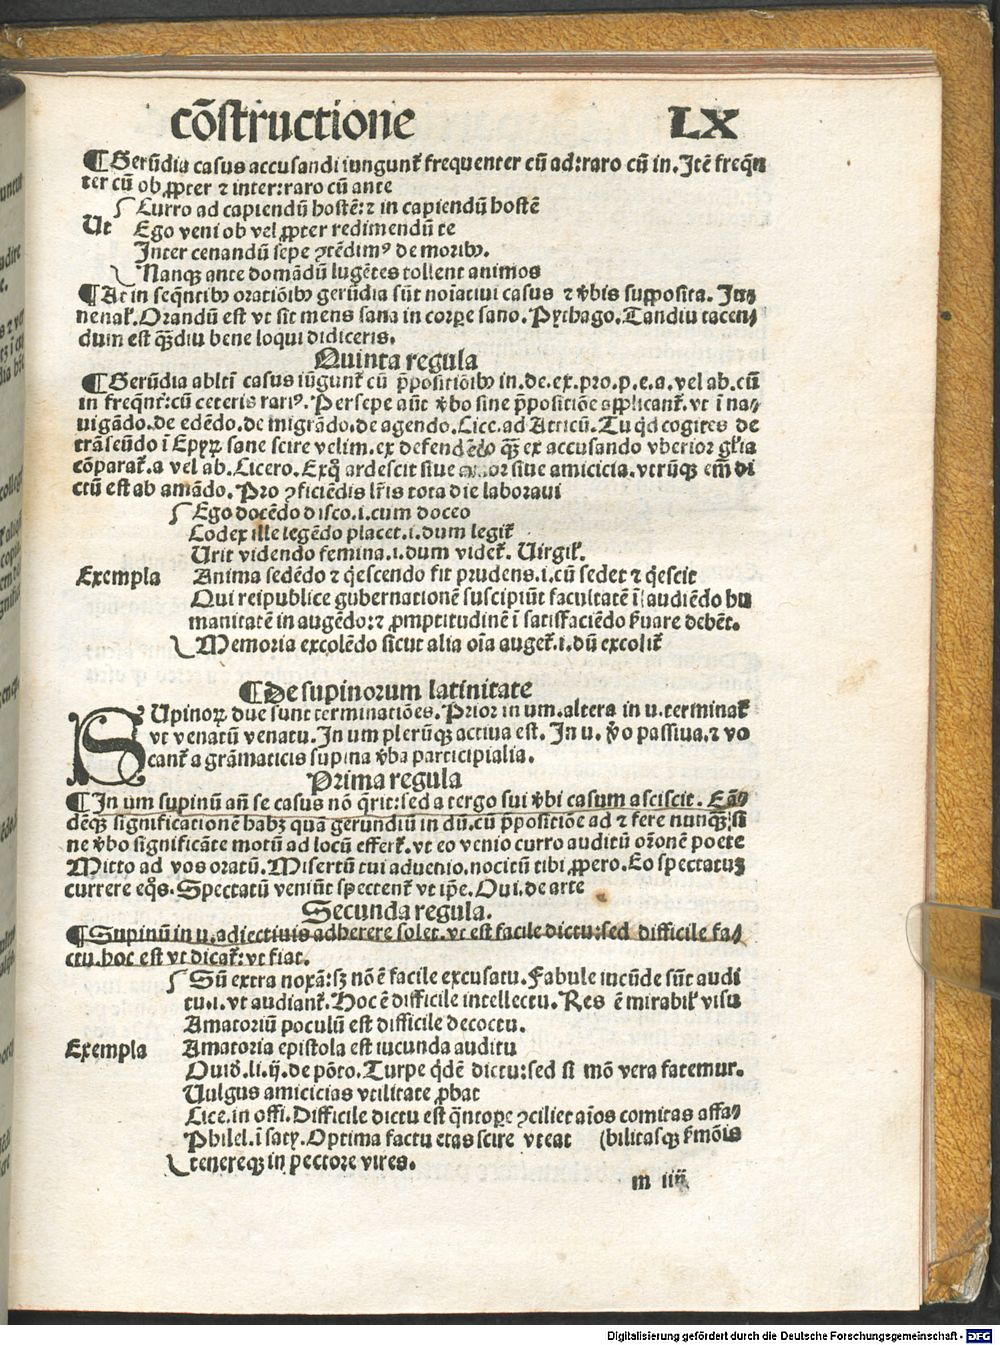 cōstructione LX
¶Gerūdia casus accusandi iungunt᷑ frequenter cū ad:raro cū in.Itē freq̄n
ter cū ob ꝓpter ⁊ inter:raro cū ante
Curro ad capiendū hostē:⁊ in capiendū hostē
Ut Ego veni ob vel ꝓpter redimendū te
Inter cenandū sepe ꝯtēdimꝰ de moribꝰ.
Nanqꝫ ante domādū lugētes tollent animos
¶At in seq̄ntibꝰ oratiōibꝰ gerūdia sūt noīatiui casus ⁊ v̄bis supposita. Iuꝫ
nenal᷑.Orandū est vt sit mens sana in corꝑe sano.Pythago.Tandiu tacen/
dum est q̄ꝫdiu bene loqui didiceris.
Quinta regula
¶Gerūdia ablt̄i casus iūgunt᷑ cū p̄positiōibꝰ in.de.ex.pro.p.e.a.vel ab.cū
in freq̄nt᷑:cū ceteris rariꝰ.Persepe aūt v̄bo sine p̄positiōe applicant᷑.vt ī na/
uigādo.de edēdo.de migrādo.de agendo.Cice.ad Atticū.Tu qd cogites de
trāseūdo ī Epyꝝ sane scire velim.ex defendēdo q̄ꝫ ex accusando vberior gl̄ia
cōparat᷑.a vel ab.Cicero.Exq̄ ardescit siue amor siue amicicia.vtrūqꝫ em̄ di
ctū est ab amādo.Pro ꝯficiēdis lr̄is tota die laboraui
Ego docēdo disco.i.cum doceo
Codex ille legēdo placet.i.dum legit᷑
Urit videndo femina.i.dum videt᷑. Uirgil᷑.
Exempla Anima sedēdo ⁊ q̄escendo fit prudens.i.cū sedet ⁊ q̄escit
Qui reipublice gubernationē suscipiūt facultatē ī audiēdo hu
manitatē in augēdo:⁊ ꝓmptitudinē ī satisfaciēdo ẜuare debēt.
Memoria excolēdo sicut alia oīa auget᷑.i.dū excolit᷑
¶De supinorum latinitate
SUpinoꝝ due sunt terminatiōes.Prior in um.altera in u.terminat᷑
vt venatū venatu.In um plerūqꝫ actiua est. In u. v̄o passiua.⁊ vo
cant᷑ a grāmaticis supina v̄ba participialia.
Prima regula
¶In um supinū an̄ se casus nō q̄rit:sed a tergo sui v̄bi casum asciscit. Eā/
dēqꝫ significationē habꝫ quā gerundiū in dū.cū p̄positiōe ad ⁊ fere nunqꝫ si
ne v̄bo significāte motū ad locū effert᷑.vt eo venio curro auditū or̄onē poete
Mitto ad vos oratū.Misertū tui aduenio.nocitū tibi ꝓpero.Eo spectatuꝫ
currere eq̄s.Spectatū veniūt spectent᷑ vt ip̄e.Oui.de arte
Secunda regula.
¶Supinū in u.adiectiuis adherere solet.vt est facile dictu:sed difficile fa/
ctu.hoc est vt dicat᷑:vt fiat.
Sū extra noxā:sꝫ nō ē facile excusatu.Fabule iucūde sūt audi
tu.i.vt audiant᷑.Hoc ē difficile intellectu.Res ē mirabil᷑ visu
Amatoriū poculū est difficile decoctu.
Exempla Amatoria epistola est iucunda auditu
Ouid.li.ij.de pōto.Turpe q̄dē dictu:sed si mō vera fatemur.
Uulgus amicicias vtilitate ꝓbat
Cice.in offi.Difficile dictu est q̄ntoꝑe ꝯciliet aīos comitas affa/
Philel.ī saty.Optima factu etas scire vteat (bilitasqꝫ ẜmōis
tenereqꝫ in pectore vires.
m iiij
Digitalisierung gefördert durch die Deutsche Forschungsgemeinschaft - DFG